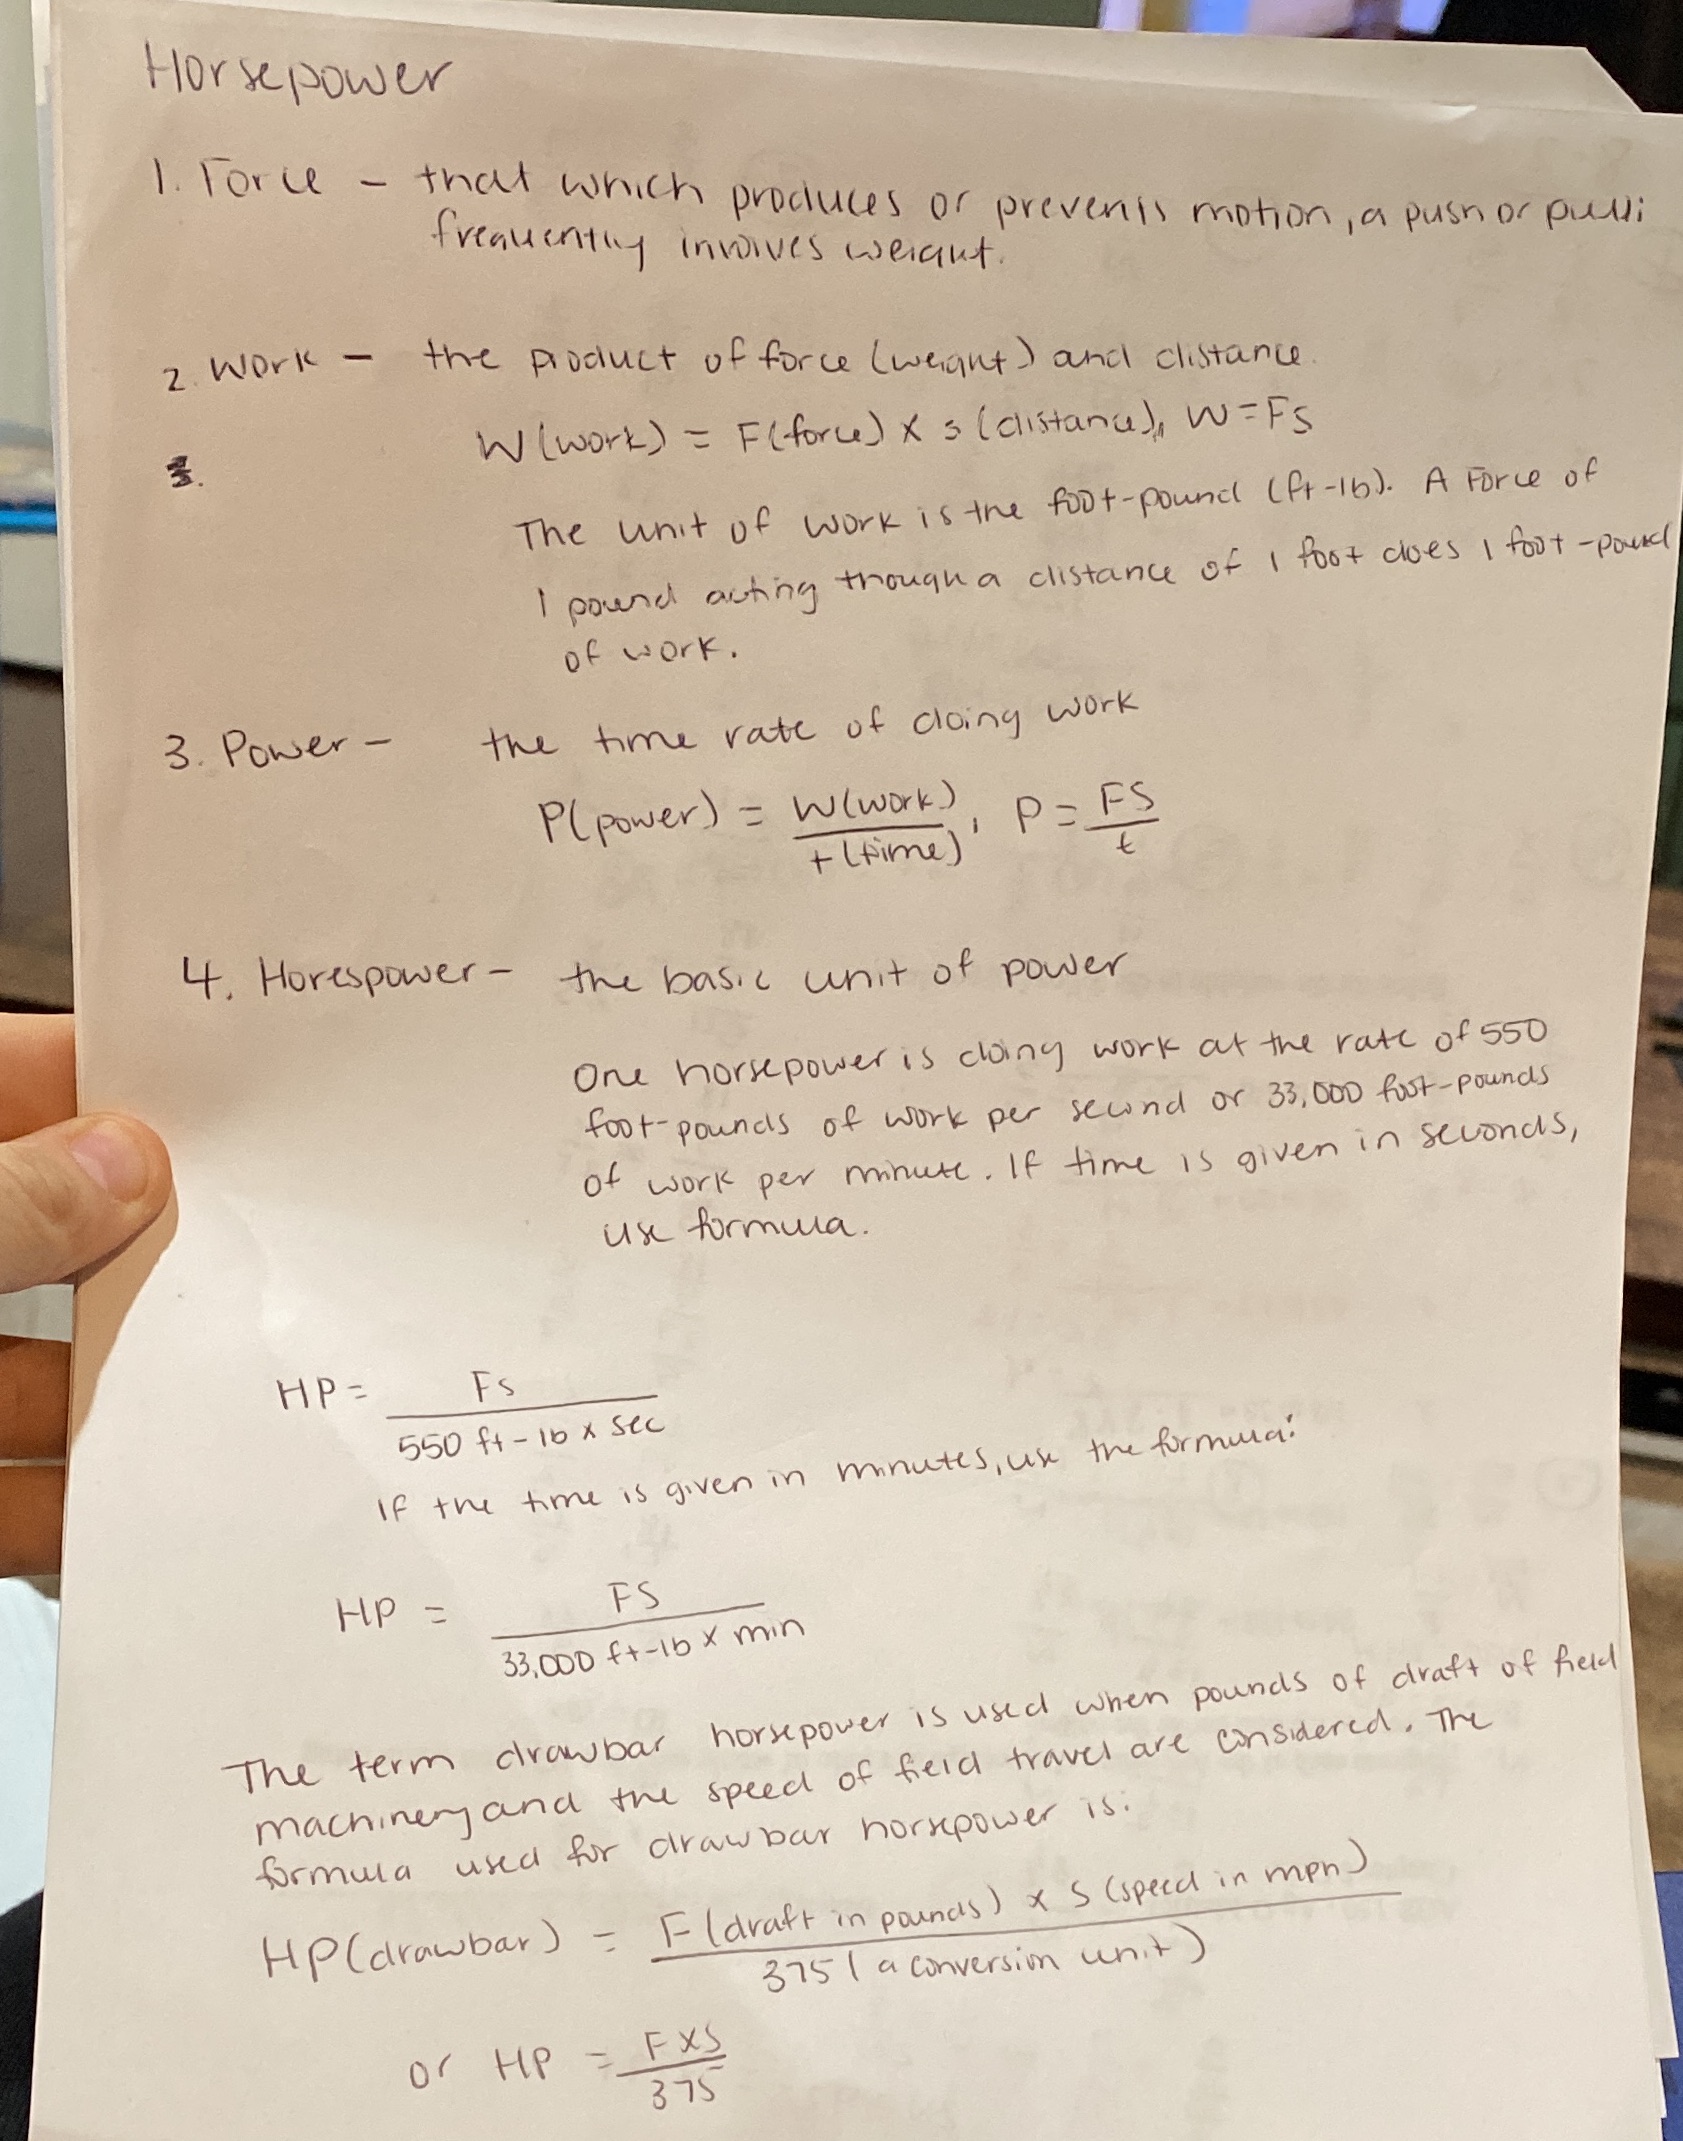 Horsepower
1. Force - that which produces or prevents motion, a push or pull;
frequently involves weight.
2. Work - the product of force (weight) and distance.
W(work) = F(force) x s (distance), W=Fs
3.
The unit of work is the foot-pound (ft-lb). A Force of
1 pound acting though a distance of 1 foot does 1 foot-pound
of work.
3. Power - the time rate of doing work
P(power) = W(work) / t(time), P = FS / t
4. Horespower - the basic unit of power
One horsepower is doing work at the rate of 550
foot-pounds of work per second or 33,000 foot-pounds
of work per minute. If time is given in seconds,
use formula.
HP = Fs
550 ft-lb x sec
If the time is given in minutes, use the formula:
HP = FS
33,000 ft-lb x min
The term drawbar horsepower is used when pounds of draft of field
machinery and the speed of field travel are considered. The
formula used for drawbar horsepower is:
HP(drawbar) = F(draft in pounds) x S (speed in mph)
375 (a conversion unit)
or HP = F X S
375